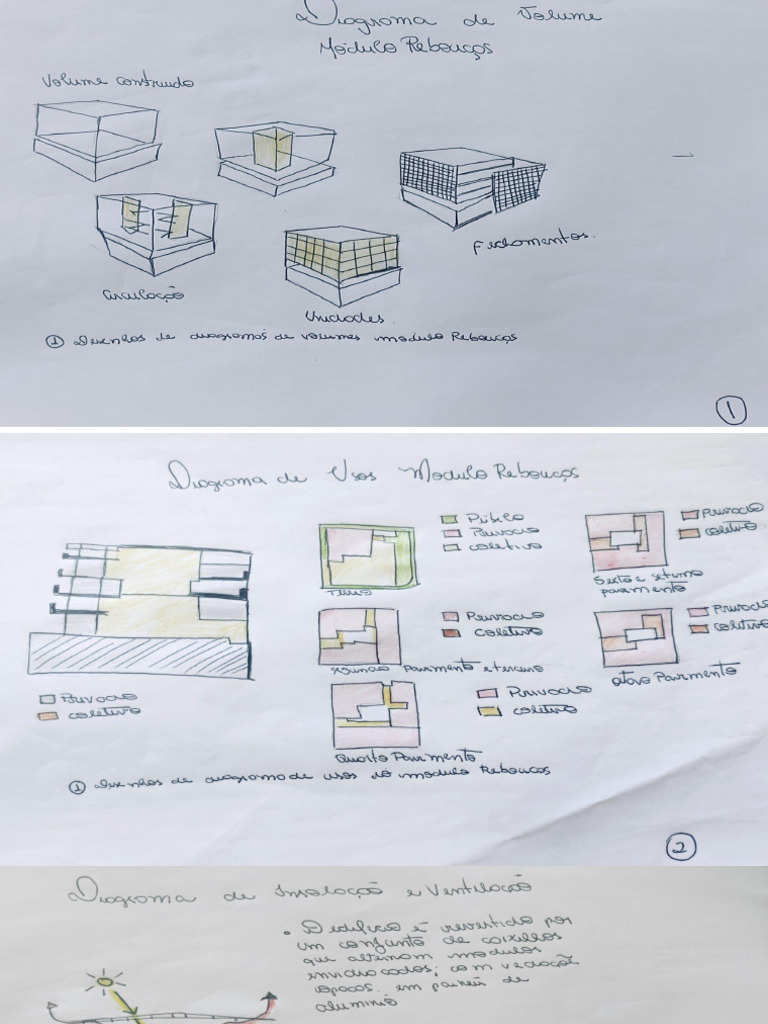 Diagrama de Volume
Módulo Rebouças
Volume construido
Fechamentos.
Circulação
Unidades.
① Desenhos de diagramas de volumes modulo Rebouças
1
Diagrama de Usos Modulo Rebouças
Público
Privado
coletivo
Térreo
Privado
coletivo
Sexto e setimo
pavimento
Privado
coletivo
segundo Pavimento e terceiro
Privado
coletivo
oitavo Pavimento
Privado
coletivo
Privado
coletivo
Quarto Pavimento
① Desenhos de diagrama de usos do modulo Rebouças
2
Diagrama de Insolação e Ventilação
• O edificio é revestido por
um conjunto de caixilhos
que alternam modulos
envidraçados; com vedação
opacas em paineis de
aluminio